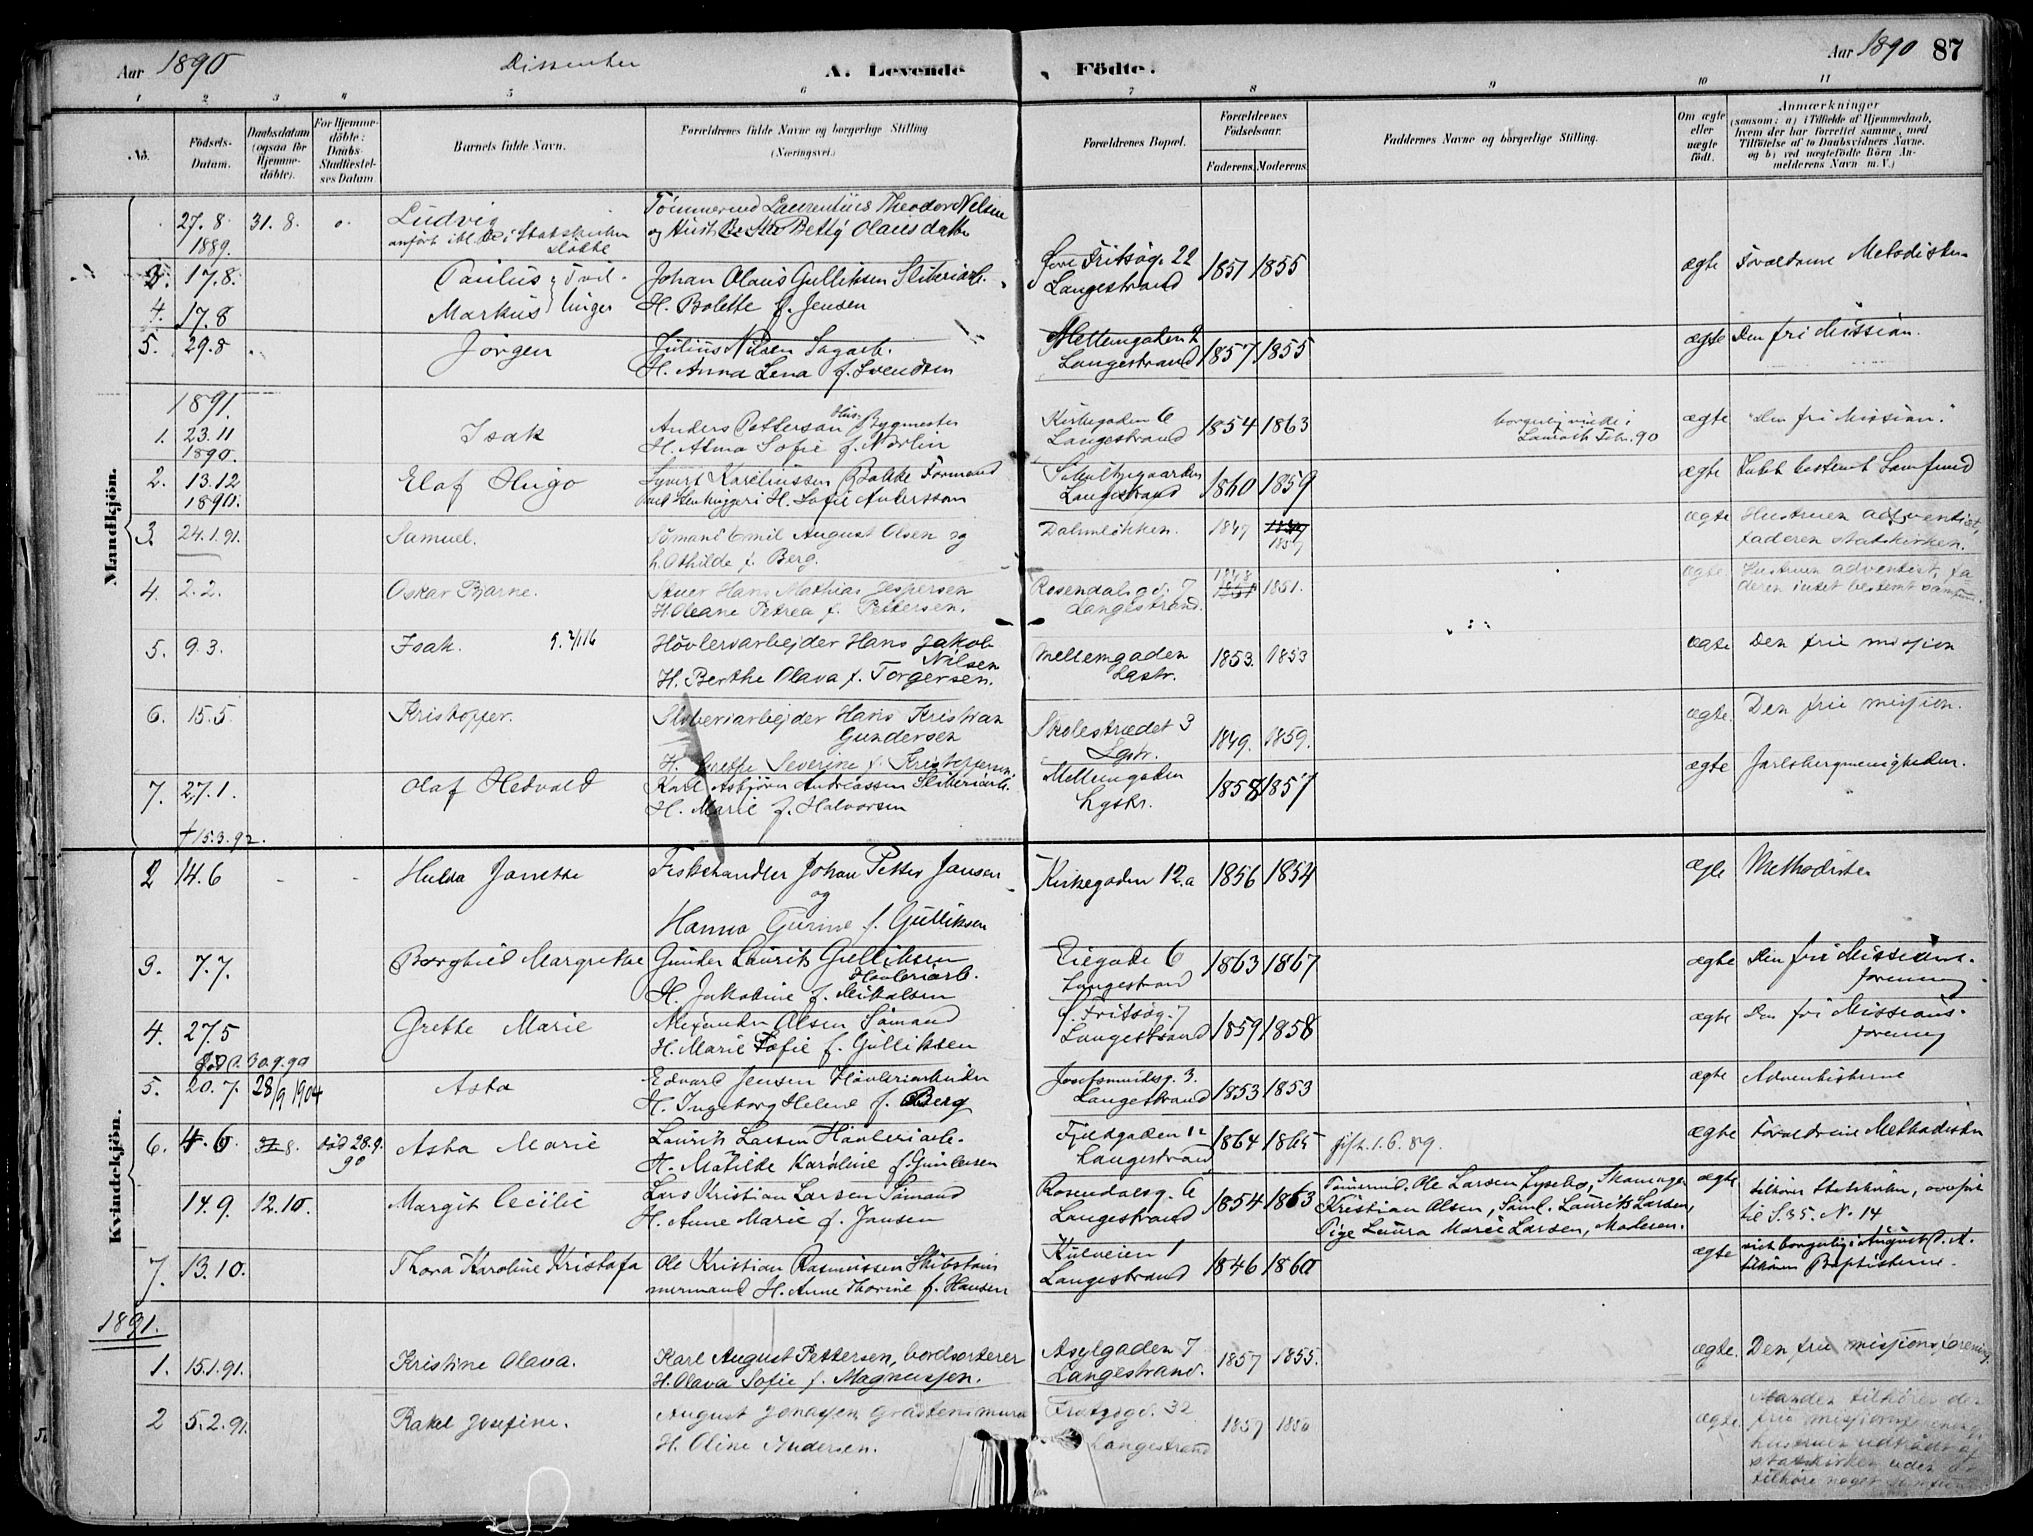 Aar 1890
Dissenter
A. Levende
Födte.
Aar 1890 87
1 2 3 4 5 6 7 8 9 10 11
No.
Födsels-
Datum.
Daabsdatum
(ogsaa for
Hjemme-
döbte).
For Hjemme-
döbte:
Daabs-
Stadfæstel-
ses Datum
Barnets fulde Navn.
Forældrenes fulde Navne og borgerlige Stilling
(Næringsvei.)
Forældrenes Bopæl.
Forældrenes
Födselsaar.
Faderens. Moderens.
Faddernes Navne og borgerlige Stilling.
Om ægte
eller
uægte
födt.
Anmærkninger
(saasom: a) i Tilfælde af Hjemmedaab,
hvem der har forrettet samme, med
Tilföielse af to Daabsvidners Navne.
og b) ved uægtefödte Börn An-
melderens Navn m. V.)
Mandkjön.
27.8 31.8. Ludvig Tömmermd Laurentius Theodor Nilsen
1889. og Hust. Betty Olausdatter
3. 17.8. Paulus Johan Olaus Gulliksen Sliberiarb. Fritsög. 22 1851 1855 ægte Forældrene Metodister
Tvil-
linger
Langestrand
4. 17.8 Markus H. Bolette f. Jensen
5. 29.8 Jörgen Julius Nilsen Sagarb. Mellemgaden 2 1857 1855 ægte Den fri Mission.
H. Anna Lena f. Svendsen Langestrand
1891.
1. 23.11 Isak Anders Petterson Bygmester Kirkegaden 6 1854 1863 ægte "Den fri Mission."
1890. H. Alma Sofie f. Norlin Langestrand
2. 13.12 Elaf Hugo Syvert Karelinssen Bakke Formand 1860 1859 ægte Intet bestemt Samfund
1890. H. Sofie Andersson Langestrand
3. 24.1.91. Samuel. Sömand Emil August Olsen og Dalmlökken. 1847 1857 ægte Hustruen adventist,
h. Othilde f. Berg. faderen statskirken.
4. 2.2. Oskar Bjarne. Stuer Hans Mathias Jespersen Rosendalsgd. 7 1851. ægte. Hustruen adventist, fa-
H. Oleane Petrea f. Pettersen. Langestrand. deren intet bestemt samfund.
5. 9.3. Isak. Hövleriarbejder Hans Jakob Mellemgaden 1853. 1853 ægte Den frie mission
Nilsen
H. Berthe Olava f. Torgersen. Lgstr.
6. 15.5. Kristoffer. Sliberiarbejder Hans Kristian Skolestrædet 3 1849. 1859. ægte. Den frie mission.
Gundersen
H. Grethe Severine f. Kristoffersen. Lgstr.
7. 27.1. Olaf Hedvald Karl Asbjörn Andreassen Sliberiarb. Mellemgaden 1858 1857 ægte Jarlsbergmenigheden.
H. Marie f. Halvorsen Lgstr.
† 15.3.92.
Kvindekjön.
2 14.6 - - Hulda Janette Fiskehandler Johan Petter Jansen Kirkegaden 12.a 1856 1854 ægte Methodister
og
Hanna Gurine f. Gulliksen
3. 7.7. Borghild Margrethe Gunder Laurits Gulliksen Eiegade 6 1863 1867 ægte Den fri Missions-
Hövleriarb.
H. Jakobine f. Mikalsen Langestrand forening
4. 27.5 Grethe Marie Alexander Olsen Sömand Fritsög. 7 1859 1858 ægte Den fri Missions-
död d. 30.9.90 H. Marie Sofie f. Gulliksen Langestrand forening
5. 20.7. 28/9 1904 Asta Edvard Jensen Hövleriarbeider 3. 1853 1853 ægte Adventisterne
H. Ingeborg Helene f. Berg Langestrand
6. 4.6. 8. död 28.9. Asta Marie Laurits Larsen Hövleriarb. Fjeldgaden 12 1864 1865 gift 1.6.89. ægte Forældrene Methodister
90 H. Matilde Karoline f. Gundersen Langestrand
14.9. 12.10. Margit Cecilie Lars Kristian Larsen Sömand Rosendalsg. 6 1854 1863 Tömermd. Ole Larsen Lysebo, Stavanger ægte tilhörer Statskirken, overfört
H. Anne Marie f. Jansen Langestrand Kristian Olsen, Söml. Laurits Larsen, til S. 35. N. 14
Pige Laura Marie Larsen, Moderen.
7. 13.10. Thora Karoline Kristofa Ole Kristian Rasmussen Skibstöm- Kulveien 1 1846 1860 ægte viet borgerlig i August d. A.
mermand H. Anne Thorine f. Hansen Langestrand tilhörer Baptisterne.
1891.
1. 15.1.91. Kristine Olava. Karl August Pettersen, bordsorterer Asylgaden 7 1857 1855. ægte. Den frie missionsforening
H. Olava Sofie f. Magnussen. Langestrand.
2 5.2.91. Rakel Josefine. August Jonassen Graastensmurer 32 1857 1850 ægte. Manden tilhörer den
H. Oline Andersen. Langestrand frie missionsforening,
hustruen udtraadt af
statskirken uden at
tilhöre noget samfund